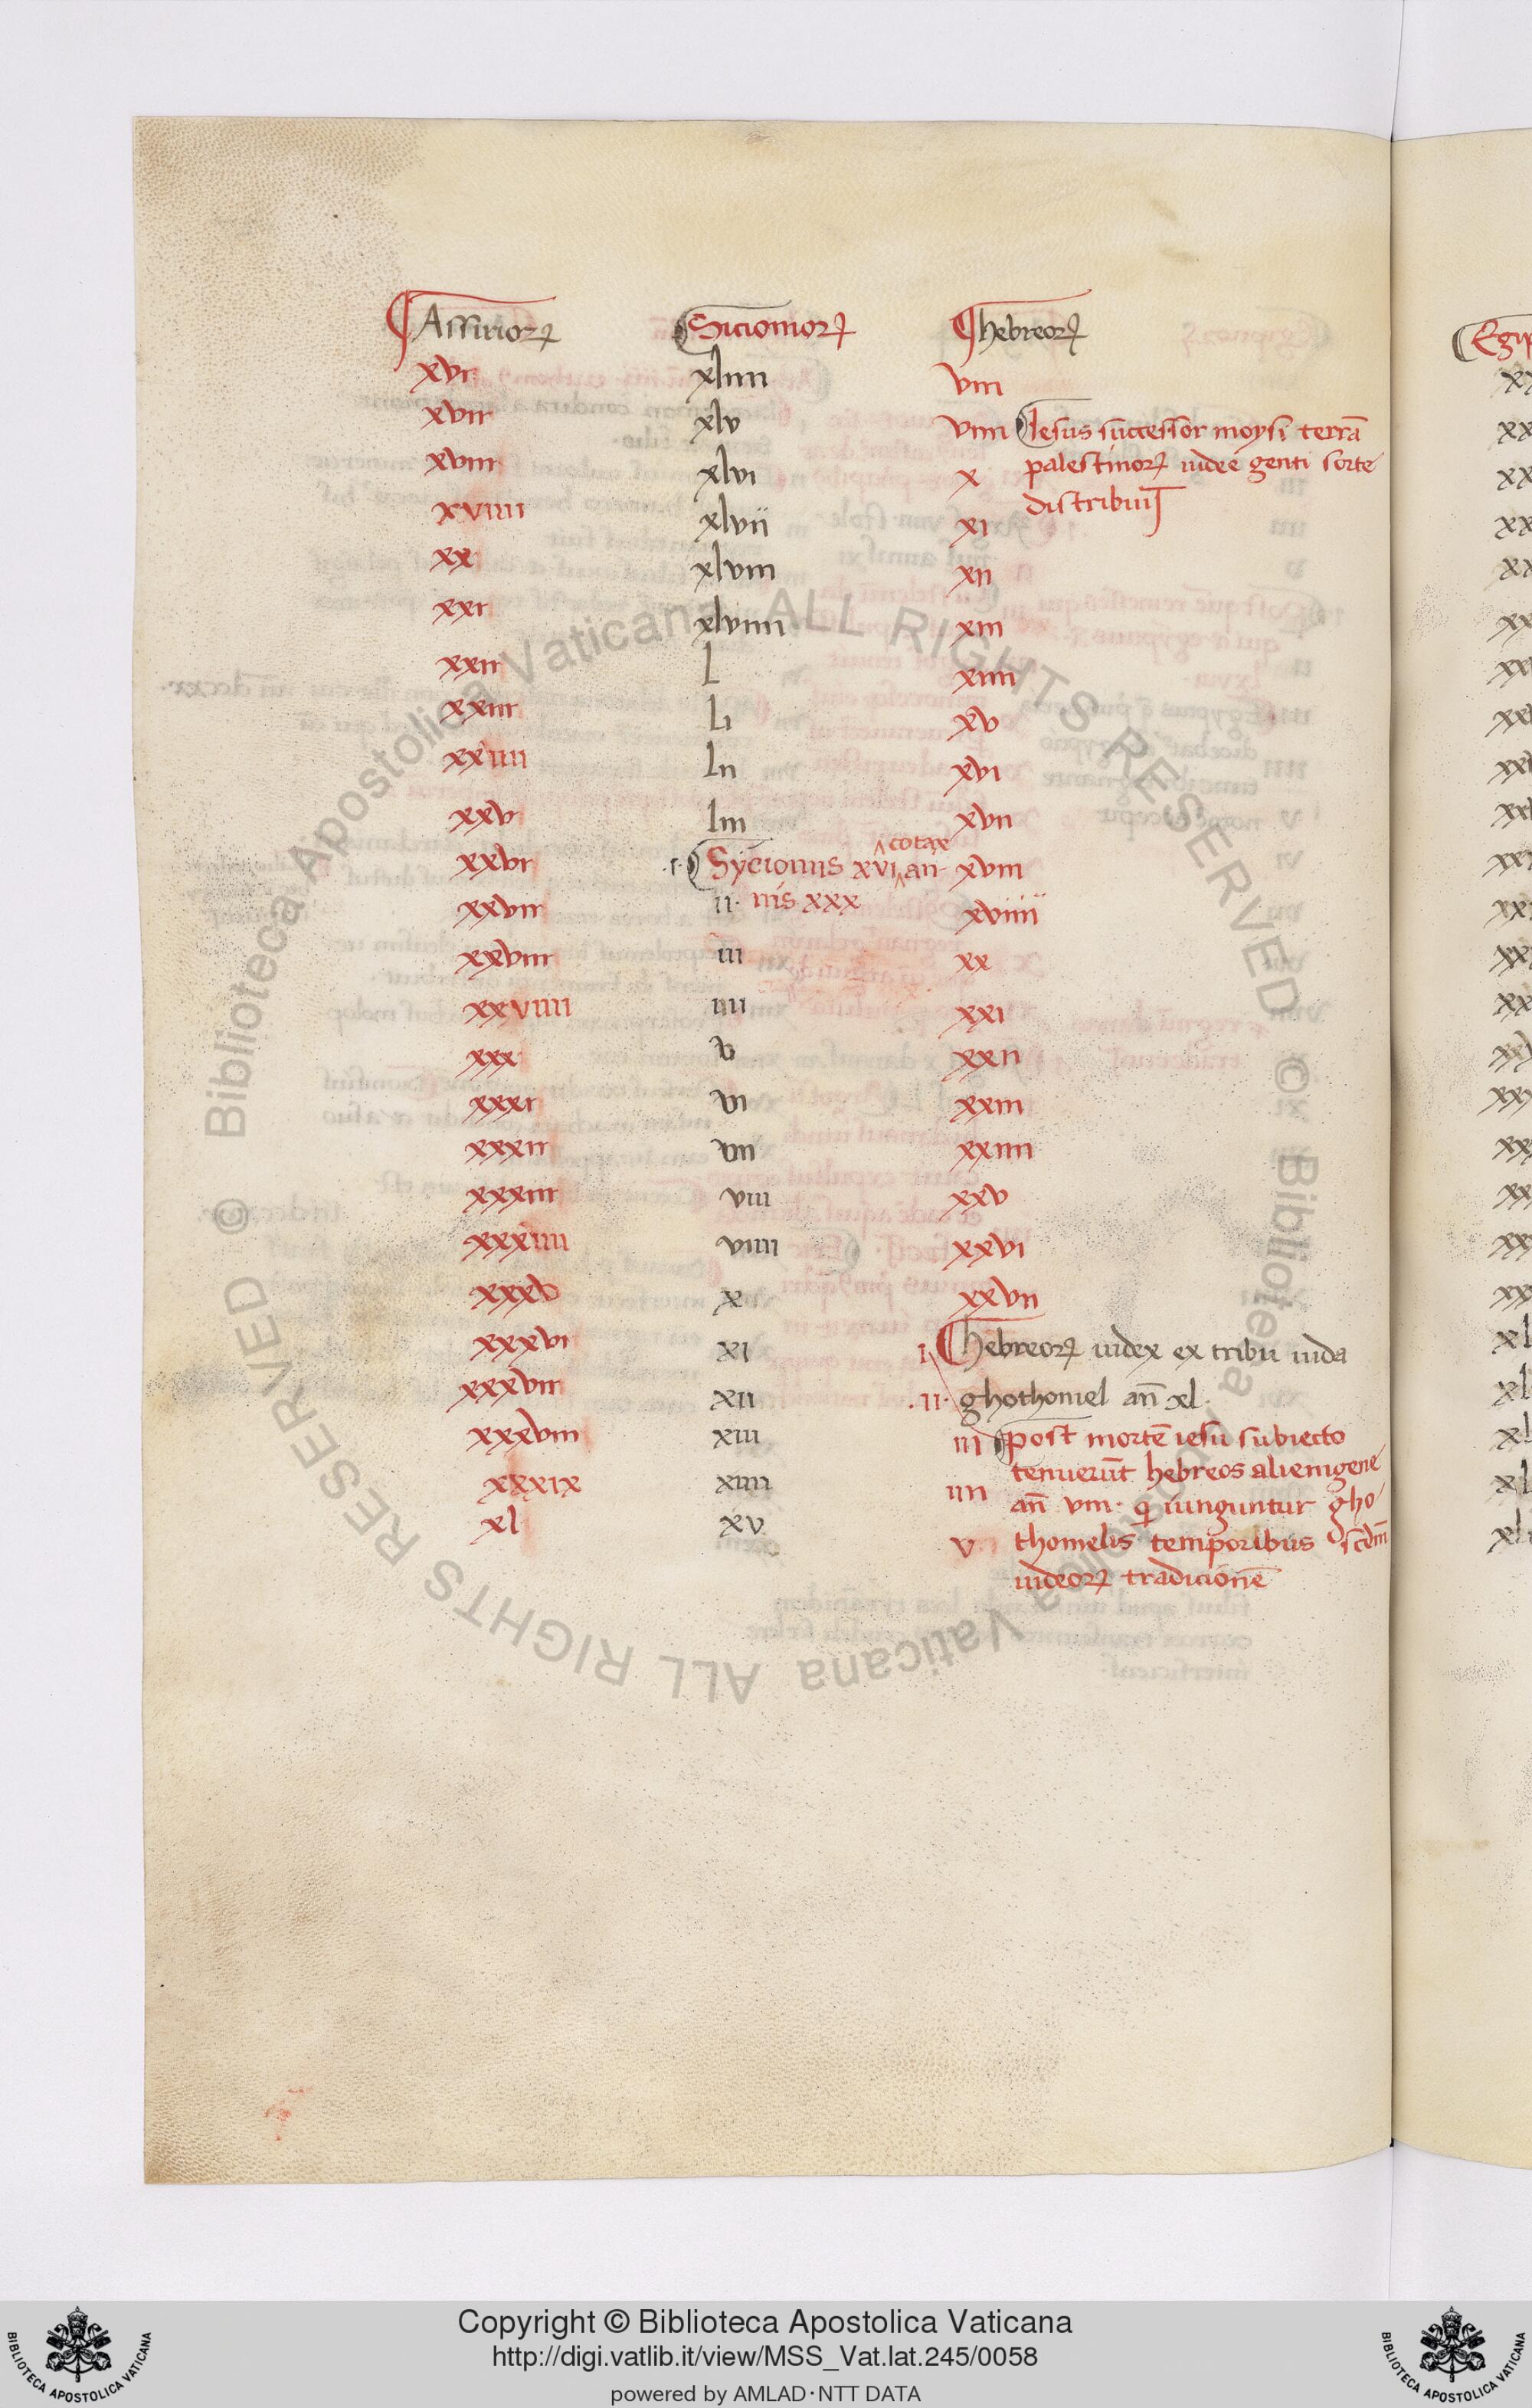 Assirioꝝ Sicionioꝝ hebreoꝝ
xvi xliiii viii
xvii xlv viiii Iesus successor moysi terrā
xviii xlvi x palestinoꝝ iudee genti sorte
xviiii xlvii xi distribuit
xx xlviii xii
xxi xlviiii xiii
xxii L xiiii
xxiii Li xv
xxiiii Lii xvi
xxv Liii xvii
cotax
xxvi ·i· Sycioniis xvi an- xviii
xxvii ii· nis xxx xviiii
xxviii iii xx
xxviiii iiii xxi
xxx v xxii
xxxi vi xxiii
xxxii vii xxiiii
xxxiii viii xxv
xxxiiii viiii xxvi
xxxv x xxvii
xxxvi xi i hebreoꝝ iudex ex tribu iuda
xxxvii xii .ii. ghothoniel an̄ xl.
xxxviii xiii iii post mortē iesu subiecto
tenuerūt hebreos alienigene
xxxix xiiii iiii an̄ viii· qͥ iunguntur gho
xl xv v thonielis temporibus scd̄m
iudeoꝝ tradicionē
Egip
Copyright © Biblioteca Apostolica Vaticana
http://digi.vatlib.it/view/MSS_Vat.lat.245/0058
powered by AMLAD·NTT DATA
BIBLIOTECA APOSTOLICA VATICANA
BIBLIOTECA APOSTOLICA VATICANA
© Biblioteca Apostolica Vaticana ALL RIGHTS RESERVED
© Biblioteca Apostolica Vaticana ALL RIGHTS RESERVED